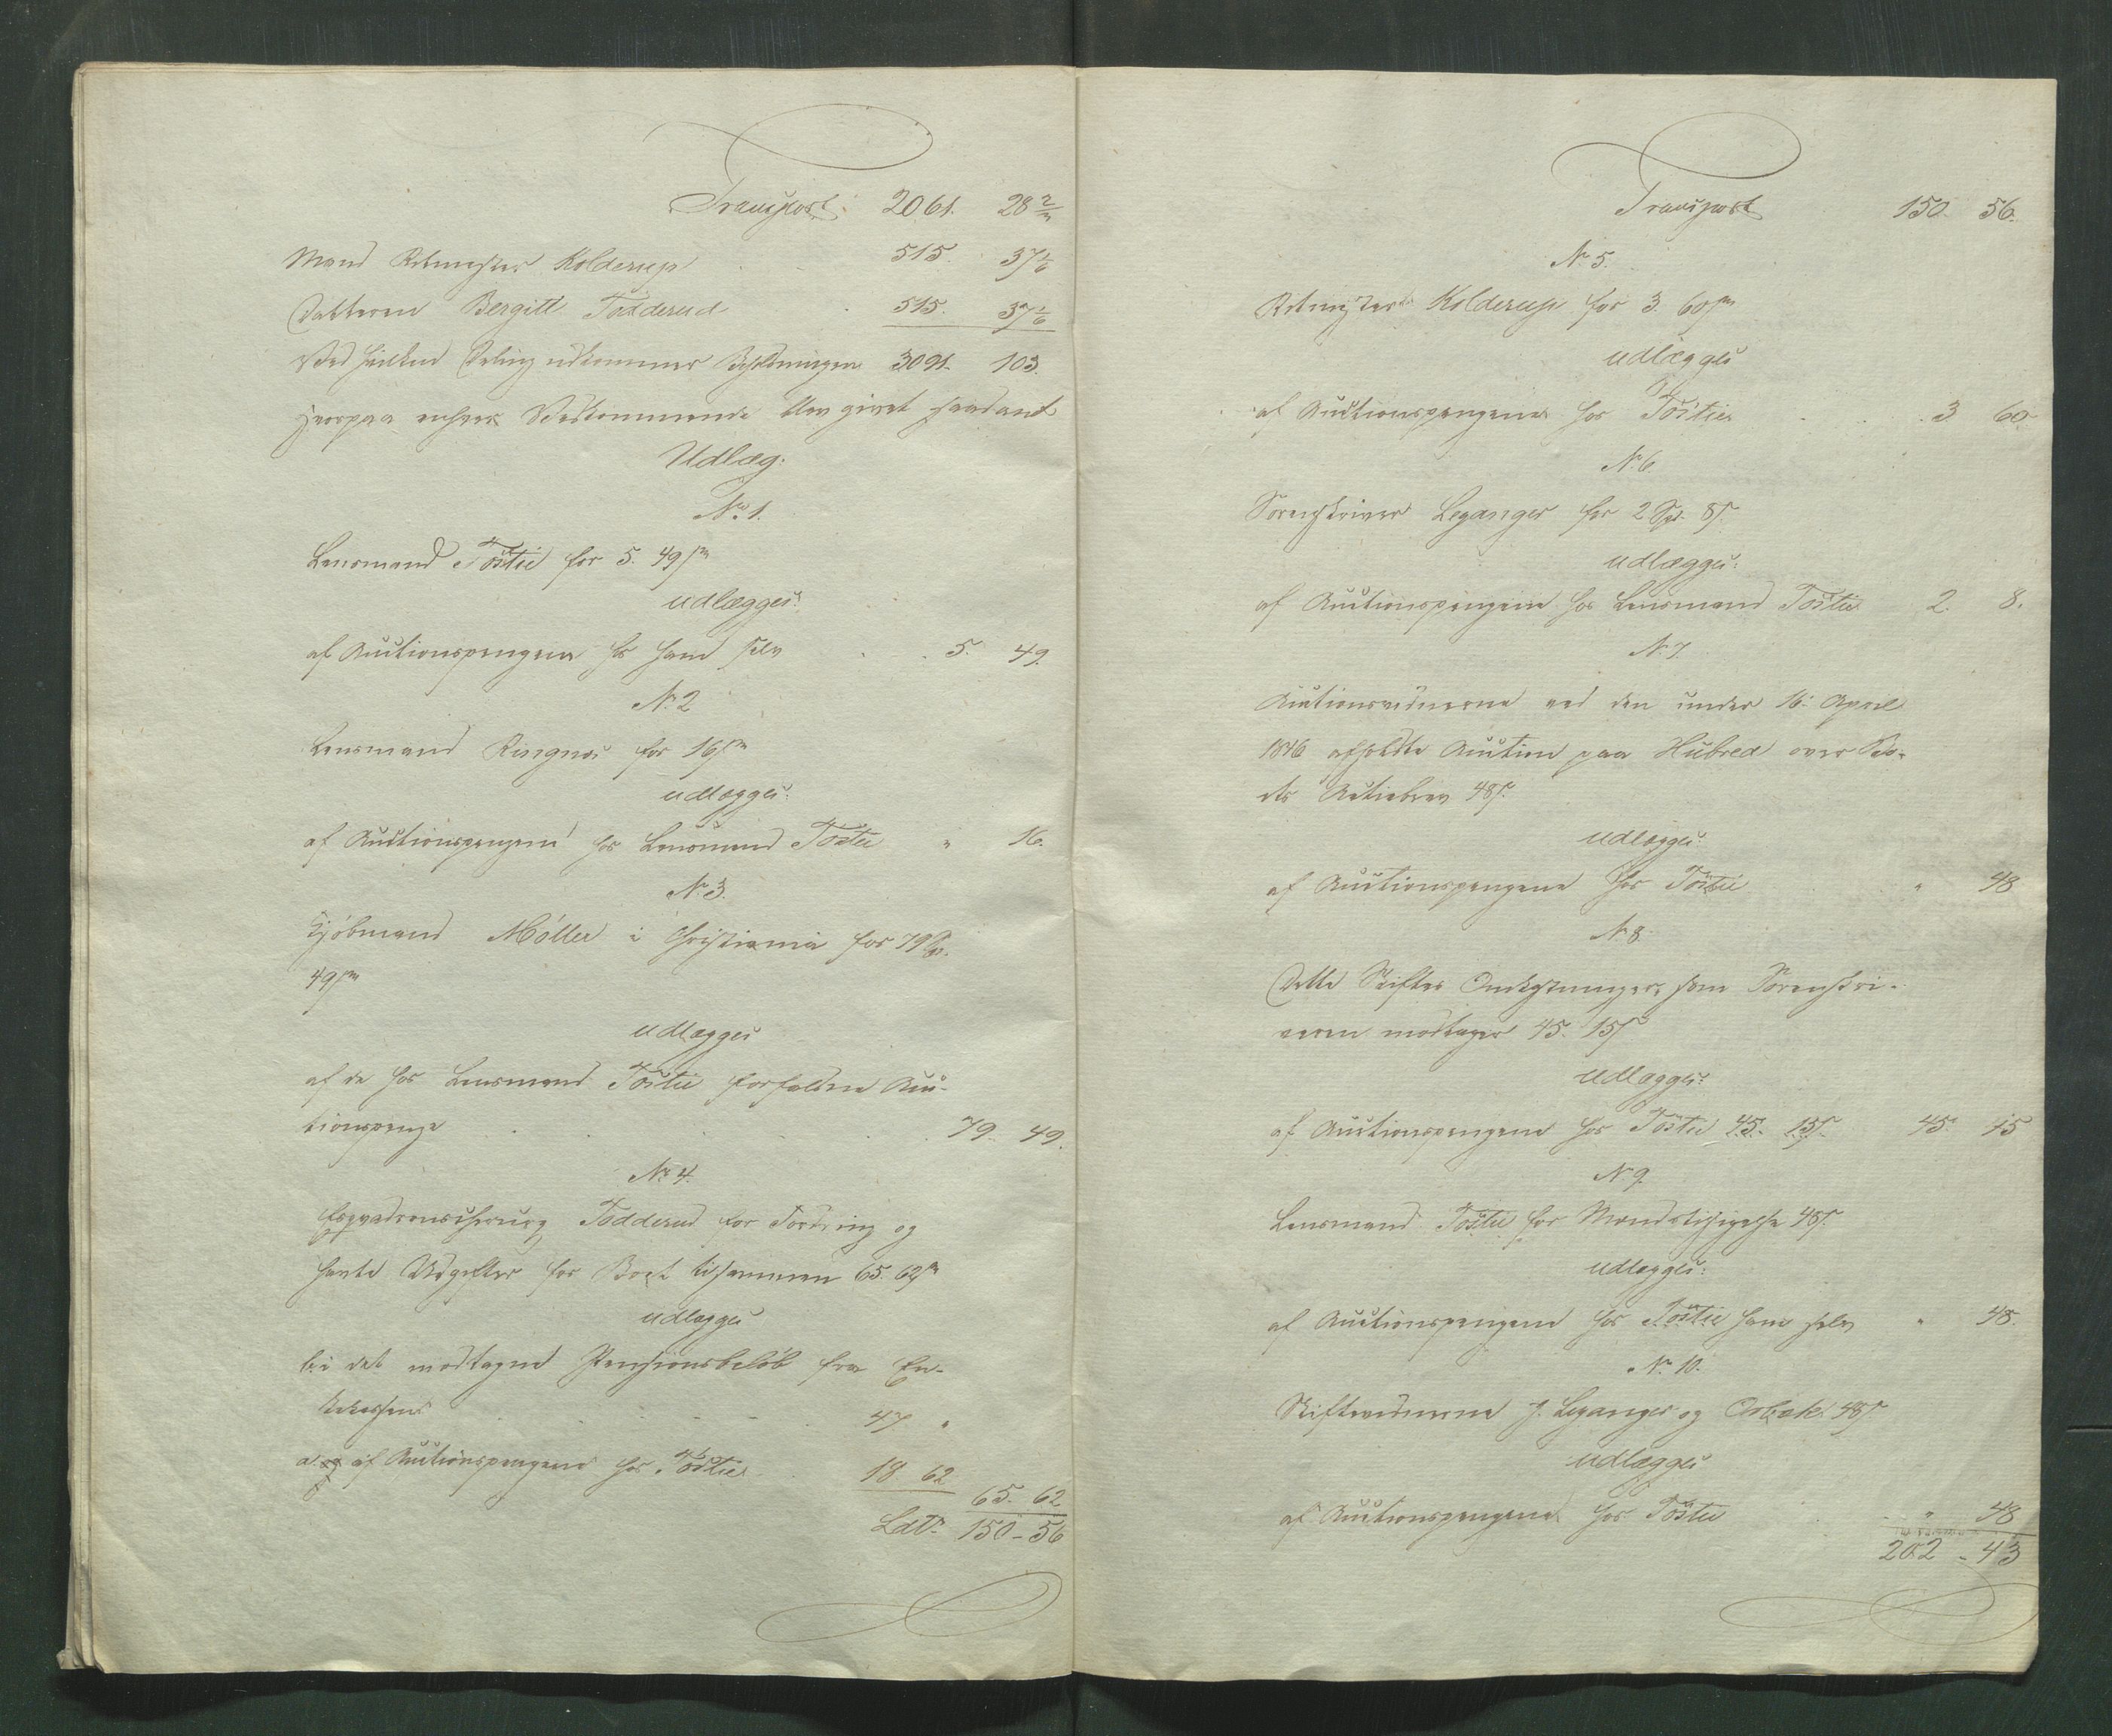 Transport 2061. 28 2/m
Mand Ritmester Kolderup 515. 37 1/6
Datteren Bergitt Todderud 515. 37 1/6
Ved hvilken Deling udkommer Beholdningen 3091. 103.
hvorpaa enhver Vedkommende blev givet saadant
Udlæg:
No 1.
Lensmand Töstie for 5. 49 s
udlægges:
af Auctionspengene hos ham selv 5. 49.
No 2
Lensmand Ringnæs for 16 s
udlægges:
af Auctionspengene hos Lensmand Töstie " 16.
No 3.
Kjöbmand Möller i Christiania for 79 Spd.
49 s
udlægges
af de hos Lensmand Töstie forfaldne Auc-
tionspenge 79. 49.
No 4.
Esqvadronschirurg Todderud for Fordring og
havte Udgifter for Boet tilsammen 65. 62 s
udlægges
i det modtagne Pensionsbelöb fra En-
kekassen 47 "
og af Auctionspengene hos Töstie 18 62
65. 62
Lat. 150 - 56
Transport 150. 56.
No 5.
Ritmester Kolderup for 3. 60 s
udlægges
af Auctionspengene hos Töstie 3 60
No 6.
Sorenskriver Leganger for 2 Spd. 8 s
udlægges:
af Auctionspengene hos Lensmand Töstie 2. 8.
No 7.
Auctionsvidnerne ved den under 16: April
1846 afholdte Auction paa Hubred over Bo-
ets Actiebrev 48 s.
udlægges:
af Auctionspengene hos Töstie " 48
No 8.
Dette Skiftes Omkostninger, som Sorenskri-
veren modtager 45. 15 s
udlægges:
af Auctionspengene hos Töstie 45. 15 s. 45. 15
No 9.
Lensmand Töstie for Mændstilsigelse 48 s.
udlægges:
af Auctionspengene hos Töstie ham selv " 48.
No 10.
Skiftevidnerne J. Leganger og Orbæk 48 s
udlægges
af Auctionspengene hos Töstie " 48
202 - 43